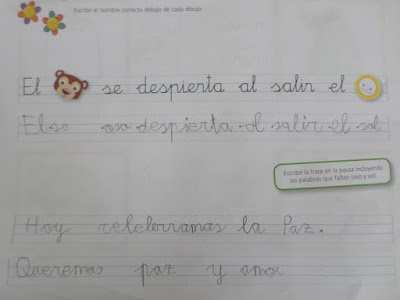 Escribir el nombre correcto debajo de cada dibujo.
El se despierta al salir el
El se oso despierta al salir el sol
Escribir la frase en la pauta incluyendo
las palabras que faltan (oso y sol)
Hoy celelerramas la Paz.
Queremos paz y amor